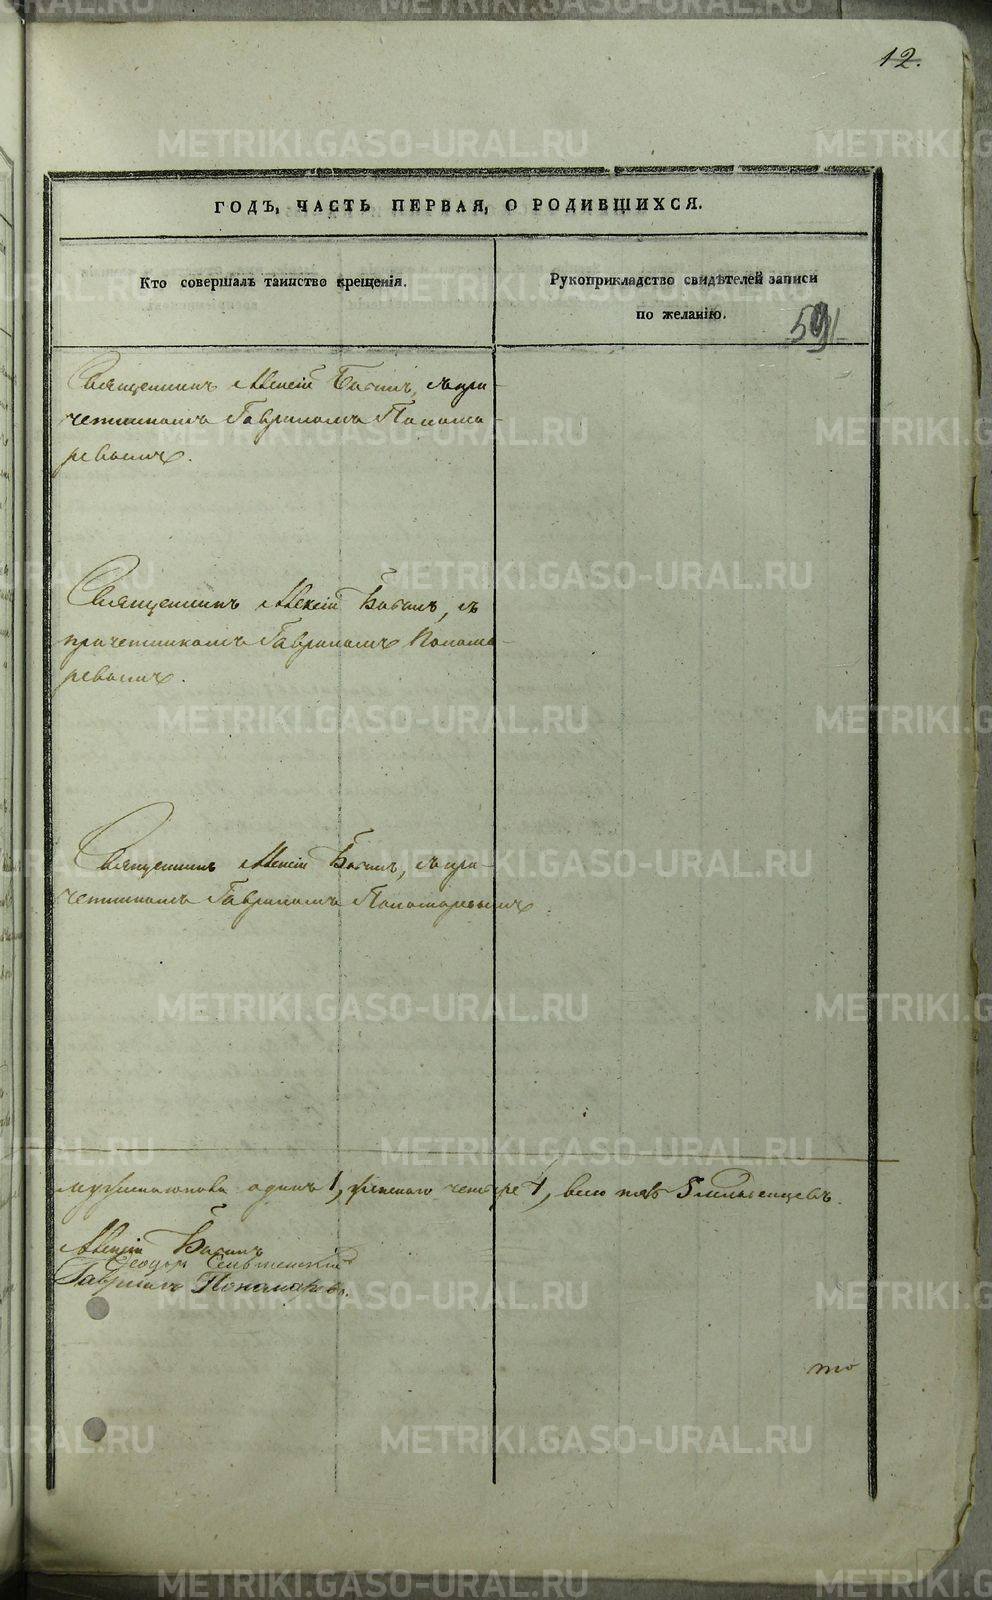 12.
ГОДЪ, ЧАСТЬ ПЕРВАЯ, О РОДИВШИХСЯ.
Кто совершалъ таинство крещенія.
Рукоприкладство свидѣтелей записи
по желанію.
591
Священникъ Алексій Бабинъ, съ при-
четникомъ Гавріиломъ Понома
ревымъ.
Священникъ Алексій Бабинъ, съ
причетникомъ Гавріиломъ Понома-
ревымъ.
Священникъ Алексій Бабинъ, съ при-
четникомъ Гавріиломъ Пономаревымъ.
одинъ 1, женскаго четыре 4, всего пять 5 младенцевъ.
Алексій Бабинъ
Ѳеодоръ
Гавріилъ Пономаревъ.
то
METRIKI.GASO-URAL.RU